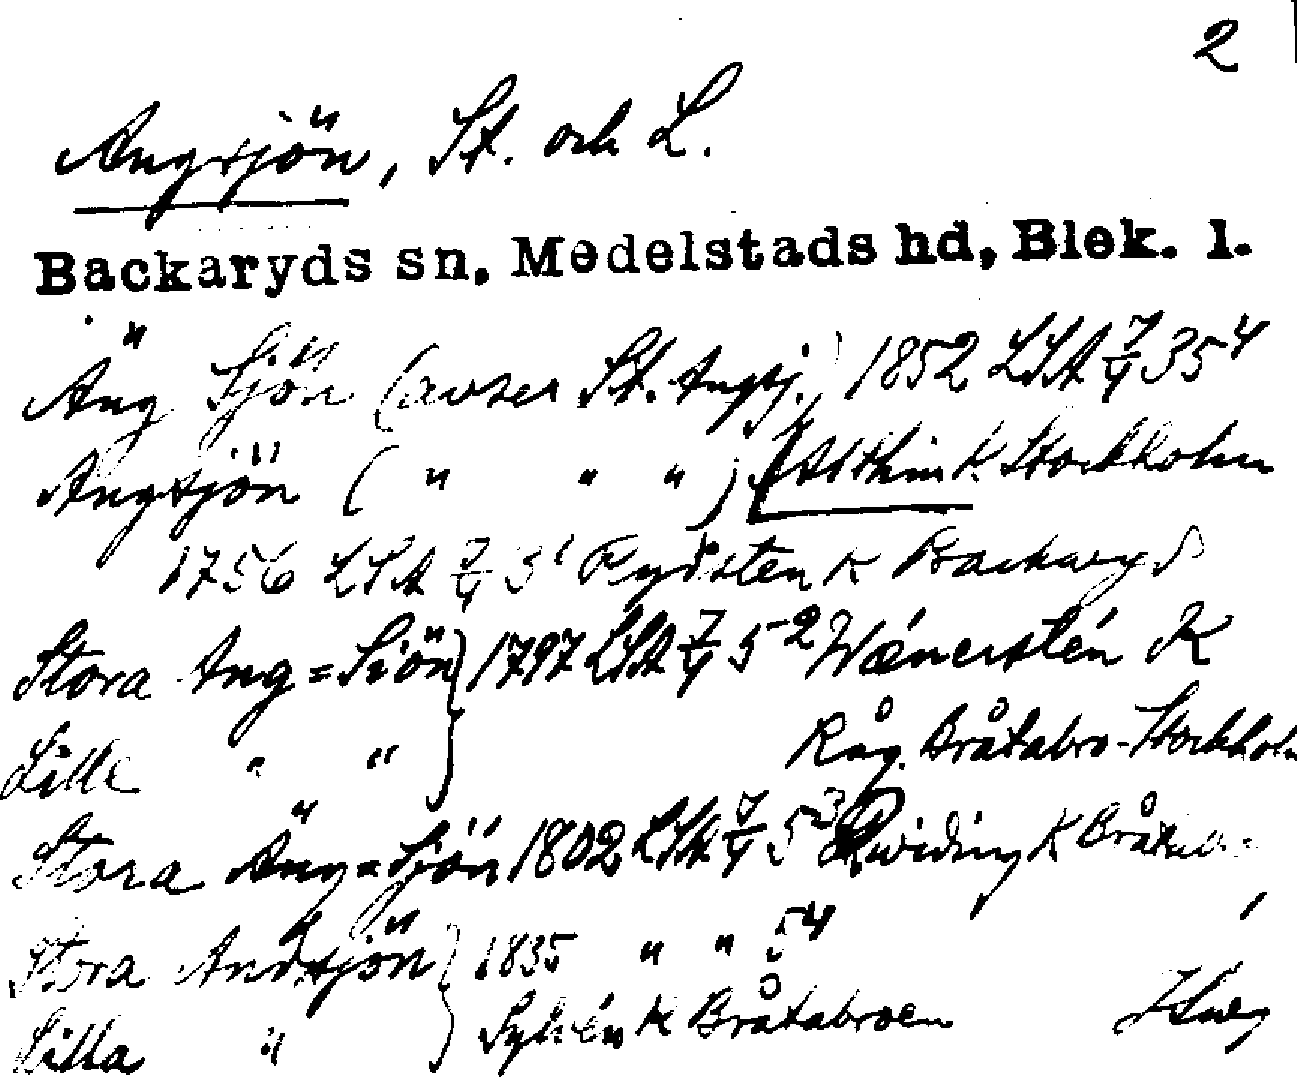 2
Angsjön, St. och L.
Backaryds sn, Medelstads hd, Blek. l.
Äng Sjön (avser St. Angsj.) 1852 LSA 7/4 35⁴
Angsjön ( " " " ) K Stockholm
1756 LSA 7/4 5¹ Rydsten K Backaryd
Stora Ang=Siön } 1797 LSA 7/4 5² Wänerstén K
Lille " " } Råg. Bråtabro-Stockholm
Stora Äng=Sjön 1802 LSA 7/4 5³ Qwiding K Bråtabro
Stora Andsjön } 1835 " " 5⁴
Lilla " } Sylvén K Bråtabroen